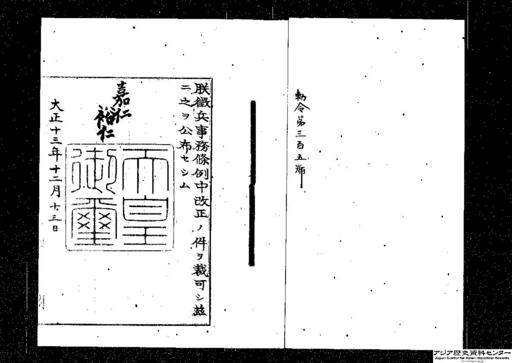 勅令第三百五號
朕徵兵事務條例中改正ノ件ヲ裁可シ茲
ニ之ヲ公布セシム
嘉仁
裕仁
天皇
御璽
大正十三年十二月十三日
アジア歴史資料センター
Japan Center for Asian Historical Records